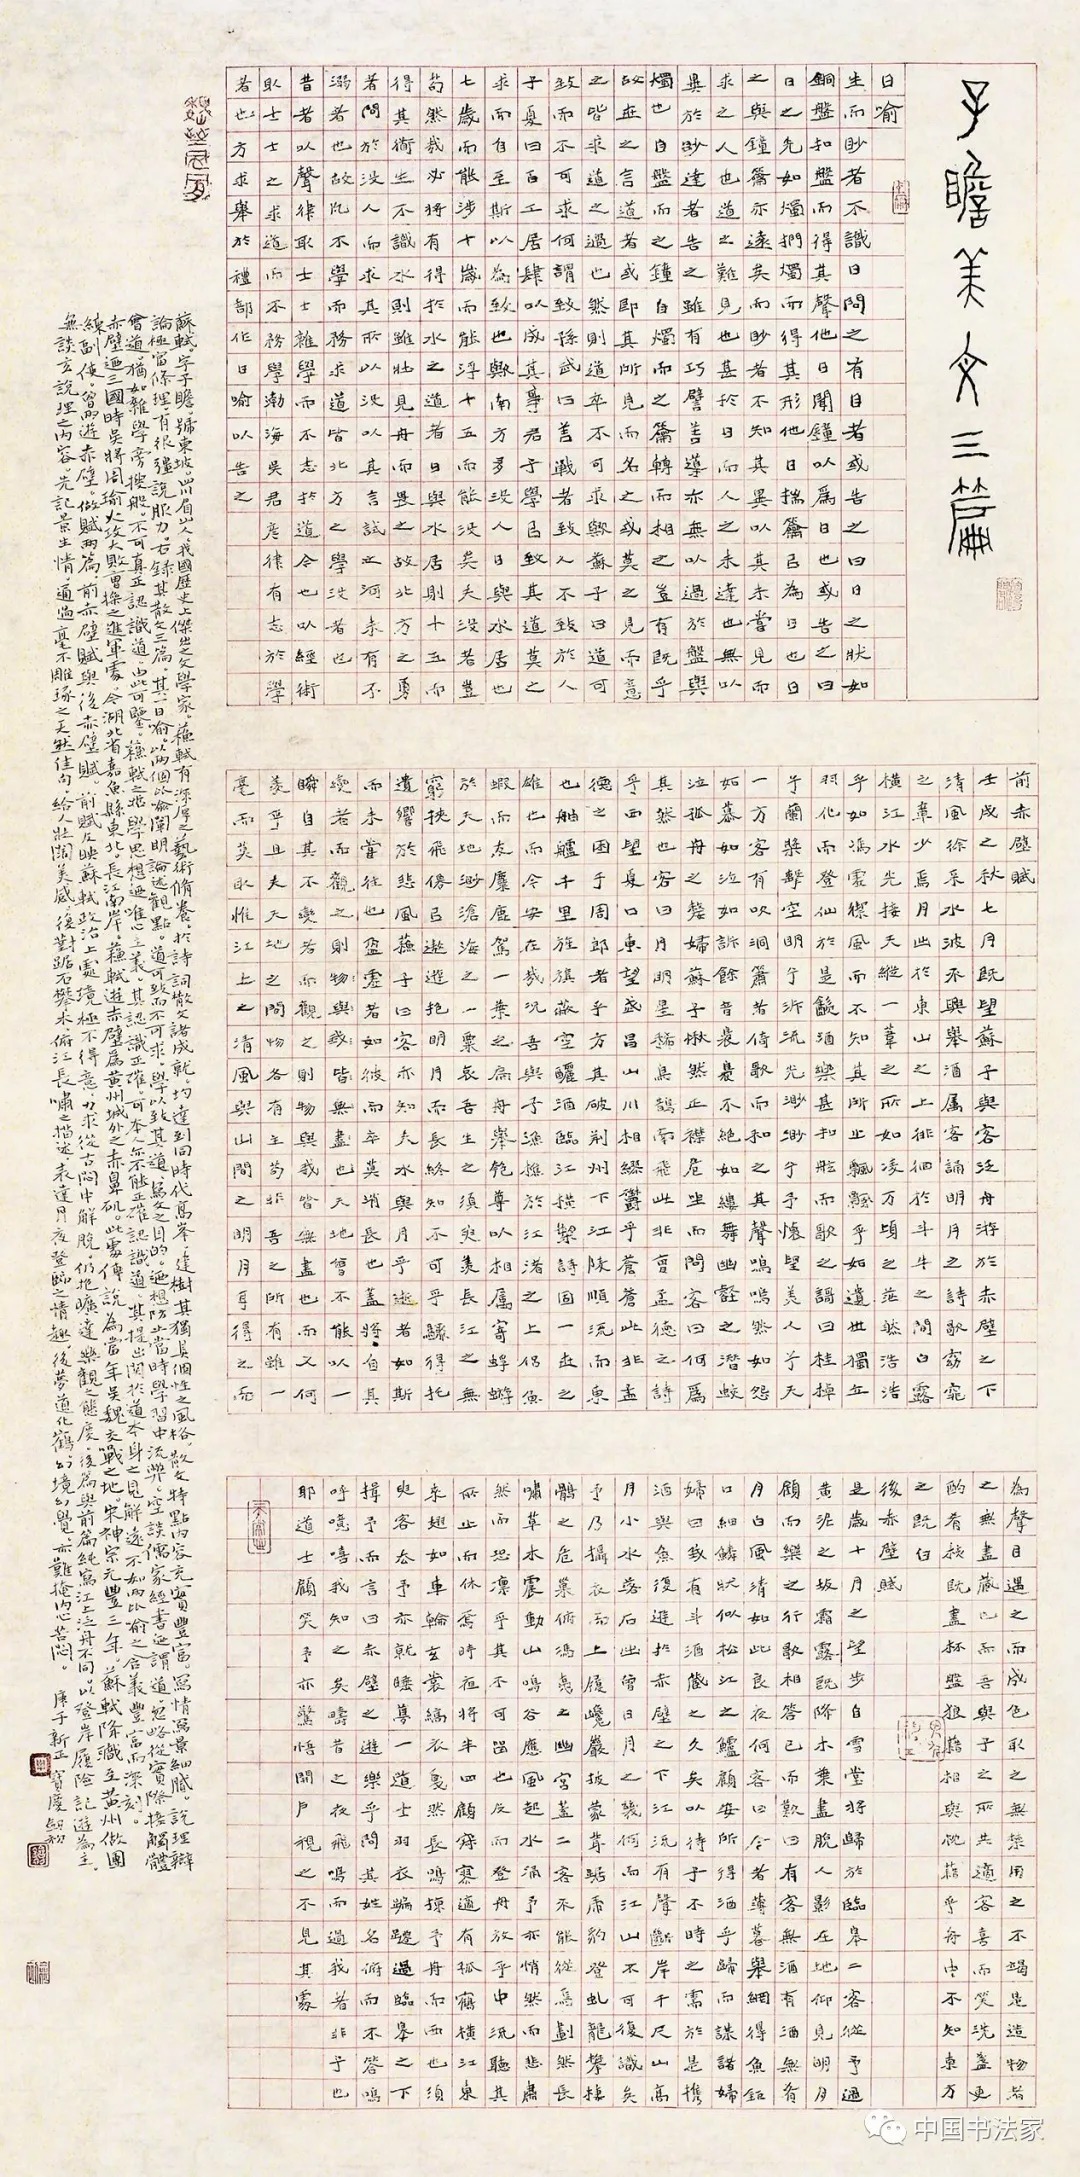 子瞻美文三篇
日喻
生而眇者不識日問之有目者或告之曰日之狀如
銅盤扣盤而得其聲他日聞鐘以為日也或告之曰
日之光如燭捫燭而得其形他日揣籥以為日也日
之與鐘籥亦遠矣而眇者不知其異以其未嘗見而
求之人也道之難見也甚於日而人之未達也無以
異於眇達者告之雖有巧譬善導亦無以過於盤與
燭也自盤而之鐘自燭而之籥轉而相之豈有既乎
故世之言道者或即其所見而名之或莫之見而意
之皆求道之過也然則道卒不可求歟蘇子曰道可
致而不可求何謂致孫武曰善戰者致人不致於人
子夏曰百工居肆以成其事君子學以致其道莫之
求而自至斯以為致也歟南方多沒人日與水居也
七歲而能涉十歲而能浮十五而能沒矣夫沒者豈
苟然哉必將有得於水之道者日與水居則十五而
得其術生不識水則雖壯見舟而畏之故北方之勇
者問於沒人而求其所以沒以其言試之河未有不
溺者也故凡不學而務求道皆北方之學沒者也
昔者以聲律取士士雜學而不志於道今也以經術
取士士之求道而不務學渤海吳君彥律有志於學
者也方求舉於禮部作日喻以告之
前赤壁賦
壬戌之秋七月既望蘇子與客泛舟游於赤壁之下
清風徐來水波不興舉酒屬客誦明月之詩歌窈窕
之章少焉月出於東山之上徘徊於斗牛之間白露
橫江水光接天縱一葦之所如凌萬頃之茫然浩浩
乎如馮虛御風而不知其所止飄飄乎如遺世獨立
羽化而登仙於是飲酒樂甚扣舷而歌之歌曰桂棹
兮蘭槳擊空明兮泝流光渺渺兮予懷望美人兮天
一方客有吹洞簫者倚歌而和之其聲嗚嗚然如怨
如慕如泣如訴餘音裊裊不絕如縷舞幽壑之潛蛟
泣孤舟之嫠婦蘇子愀然正襟危坐而問客曰何為
其然也客曰月明星稀烏鵲南飛此非曹孟德之詩
乎西望夏口東望武昌山川相繆鬱乎蒼蒼此非孟
德之困于周郎者乎方其破荊州下江陵順流而東
也舳艫千里旌旗蔽空釃酒臨江橫槊詩固一世之
雄也而今安在哉況吾與子漁樵於江渚之上侶魚
蝦而友麋鹿駕一葉之扁舟舉匏尊以相屬寄蜉蝣
於天地渺滄海之一粟哀吾生之須臾羨長江之無
窮挾飛仙以遨遊抱明月而長終知不可乎驟得托
遺響於悲風蘇子曰客亦知夫水與月乎逝者如斯
而未嘗往也盈虛者如彼而卒莫消長也蓋將自其
變者而觀之則物與我皆無盡也天地曾不能以一
瞬自其不變者而觀之則物與我皆無盡也而又何
羨乎且夫天地之間物各有主苟非吾之所有雖一
毫而莫取惟江上之清風與山間之明月耳得之而
為聲目遇之而成色取之無禁用之不竭是造物者
之無盡藏也而吾與子之所共適客喜而笑洗盞更
酌肴核既盡杯盤狼籍相與枕藉乎舟中不知東方
之既白
後赤壁賦
是歲十月之望步自雪堂將歸於臨皋二客從予過
黃泥之坂霜露既降木葉盡脫人影在地仰見明月
顧而樂之行歌相答已而歎曰有客無酒有酒無肴
月白風清如此良夜何客曰今者薄暮舉網得魚巨
口細鱗狀似松江之鱸顧安所得酒乎歸而謀諸婦
婦曰我有斗酒藏之久矣以待子不時之需於是攜
酒與魚復遊於赤壁之下江流有聲斷岸千尺山高
月小水落石出曾日月之幾何而江山不可復識矣
予乃攝衣而上履巉巖披蒙茸踞虎豹登虯龍攀棲
鶻之危巢俯馮夷之幽宮蓋二客不能從焉劃然長
嘯草木震動山鳴谷應風起水涌予亦悄然而悲肅
然而恐凜乎其不可留也反而登舟放乎中流聽其
所止而休焉時夜將半四顧寂寥適有孤鶴橫江東
來翅如車輪玄裳縞衣戛然長鳴掠予舟而西也須
臾客去予亦就睡夢一道士羽衣蹁躚過臨皋之下
揖予而言曰赤壁之遊樂乎問其姓名俯而不答嗚
呼噫嘻我知之矣疇昔之夜飛鳴而過我者非子也
耶道士顧笑予亦驚悟開戶視之不見其處
蘇軾。字子瞻。號東坡。四川眉山人。我國歷史上傑出之文學家。蘇軾有深厚之藝術脩養。於詩詞散文諸成就。均達到同時代高峯。建樹其獨具個性之風格。散文特點內容充實豐富。寫情寫景細膩。說理辯
論極富條理。有很强說服力。右錄其散文三篇。其一日喻。以兩個比喻闡明論述觀點。道可致而不可求。學以致其道。為文之目的。廼想防止當時學習中流弊。空談儒家經書廼謂道。忽略從實際接觸體
會道。猶如雜學旁搜般。不可真正認識道。由此可鑒。蘇軾之哲學思想廼唯心主義。其認識正確。可本人亦不能正確認識道。其提出関於道本身之見解遠不如兩比喻之含義豐富而深刻。
赤壁廼三國時吳將周瑜火攻大敗曹操之進軍處。今湖北省嘉魚縣東北。長江南岸。蘇軾遊赤壁為黃州城外之赤鼻矶。此處傳說為當年吳魏交戰之地。宋神宗元豐三年。蘇軾降職至黃州做團
練副使。曾兩遊赤壁。做賦兩篇。前赤壁賦與後赤壁賦。前賦反映蘇軾政治上處境極不得意。力求從古悶中解脫。仍抱曠達樂觀之態度。後篇與前篇純寫江上泛舟不同。以登岸履險記遊為主。
無談玄說理之内容。先記景生情。通過毫不雕琢之天然佳句。給人壯闊美感。後對踞石攀木俯江長嘯之描述。表達月夜登臨之情趣。後夢道化鶴幻境幻覺。亦難掩內心苦悶。 庚子新正 寶慶
中国书法家